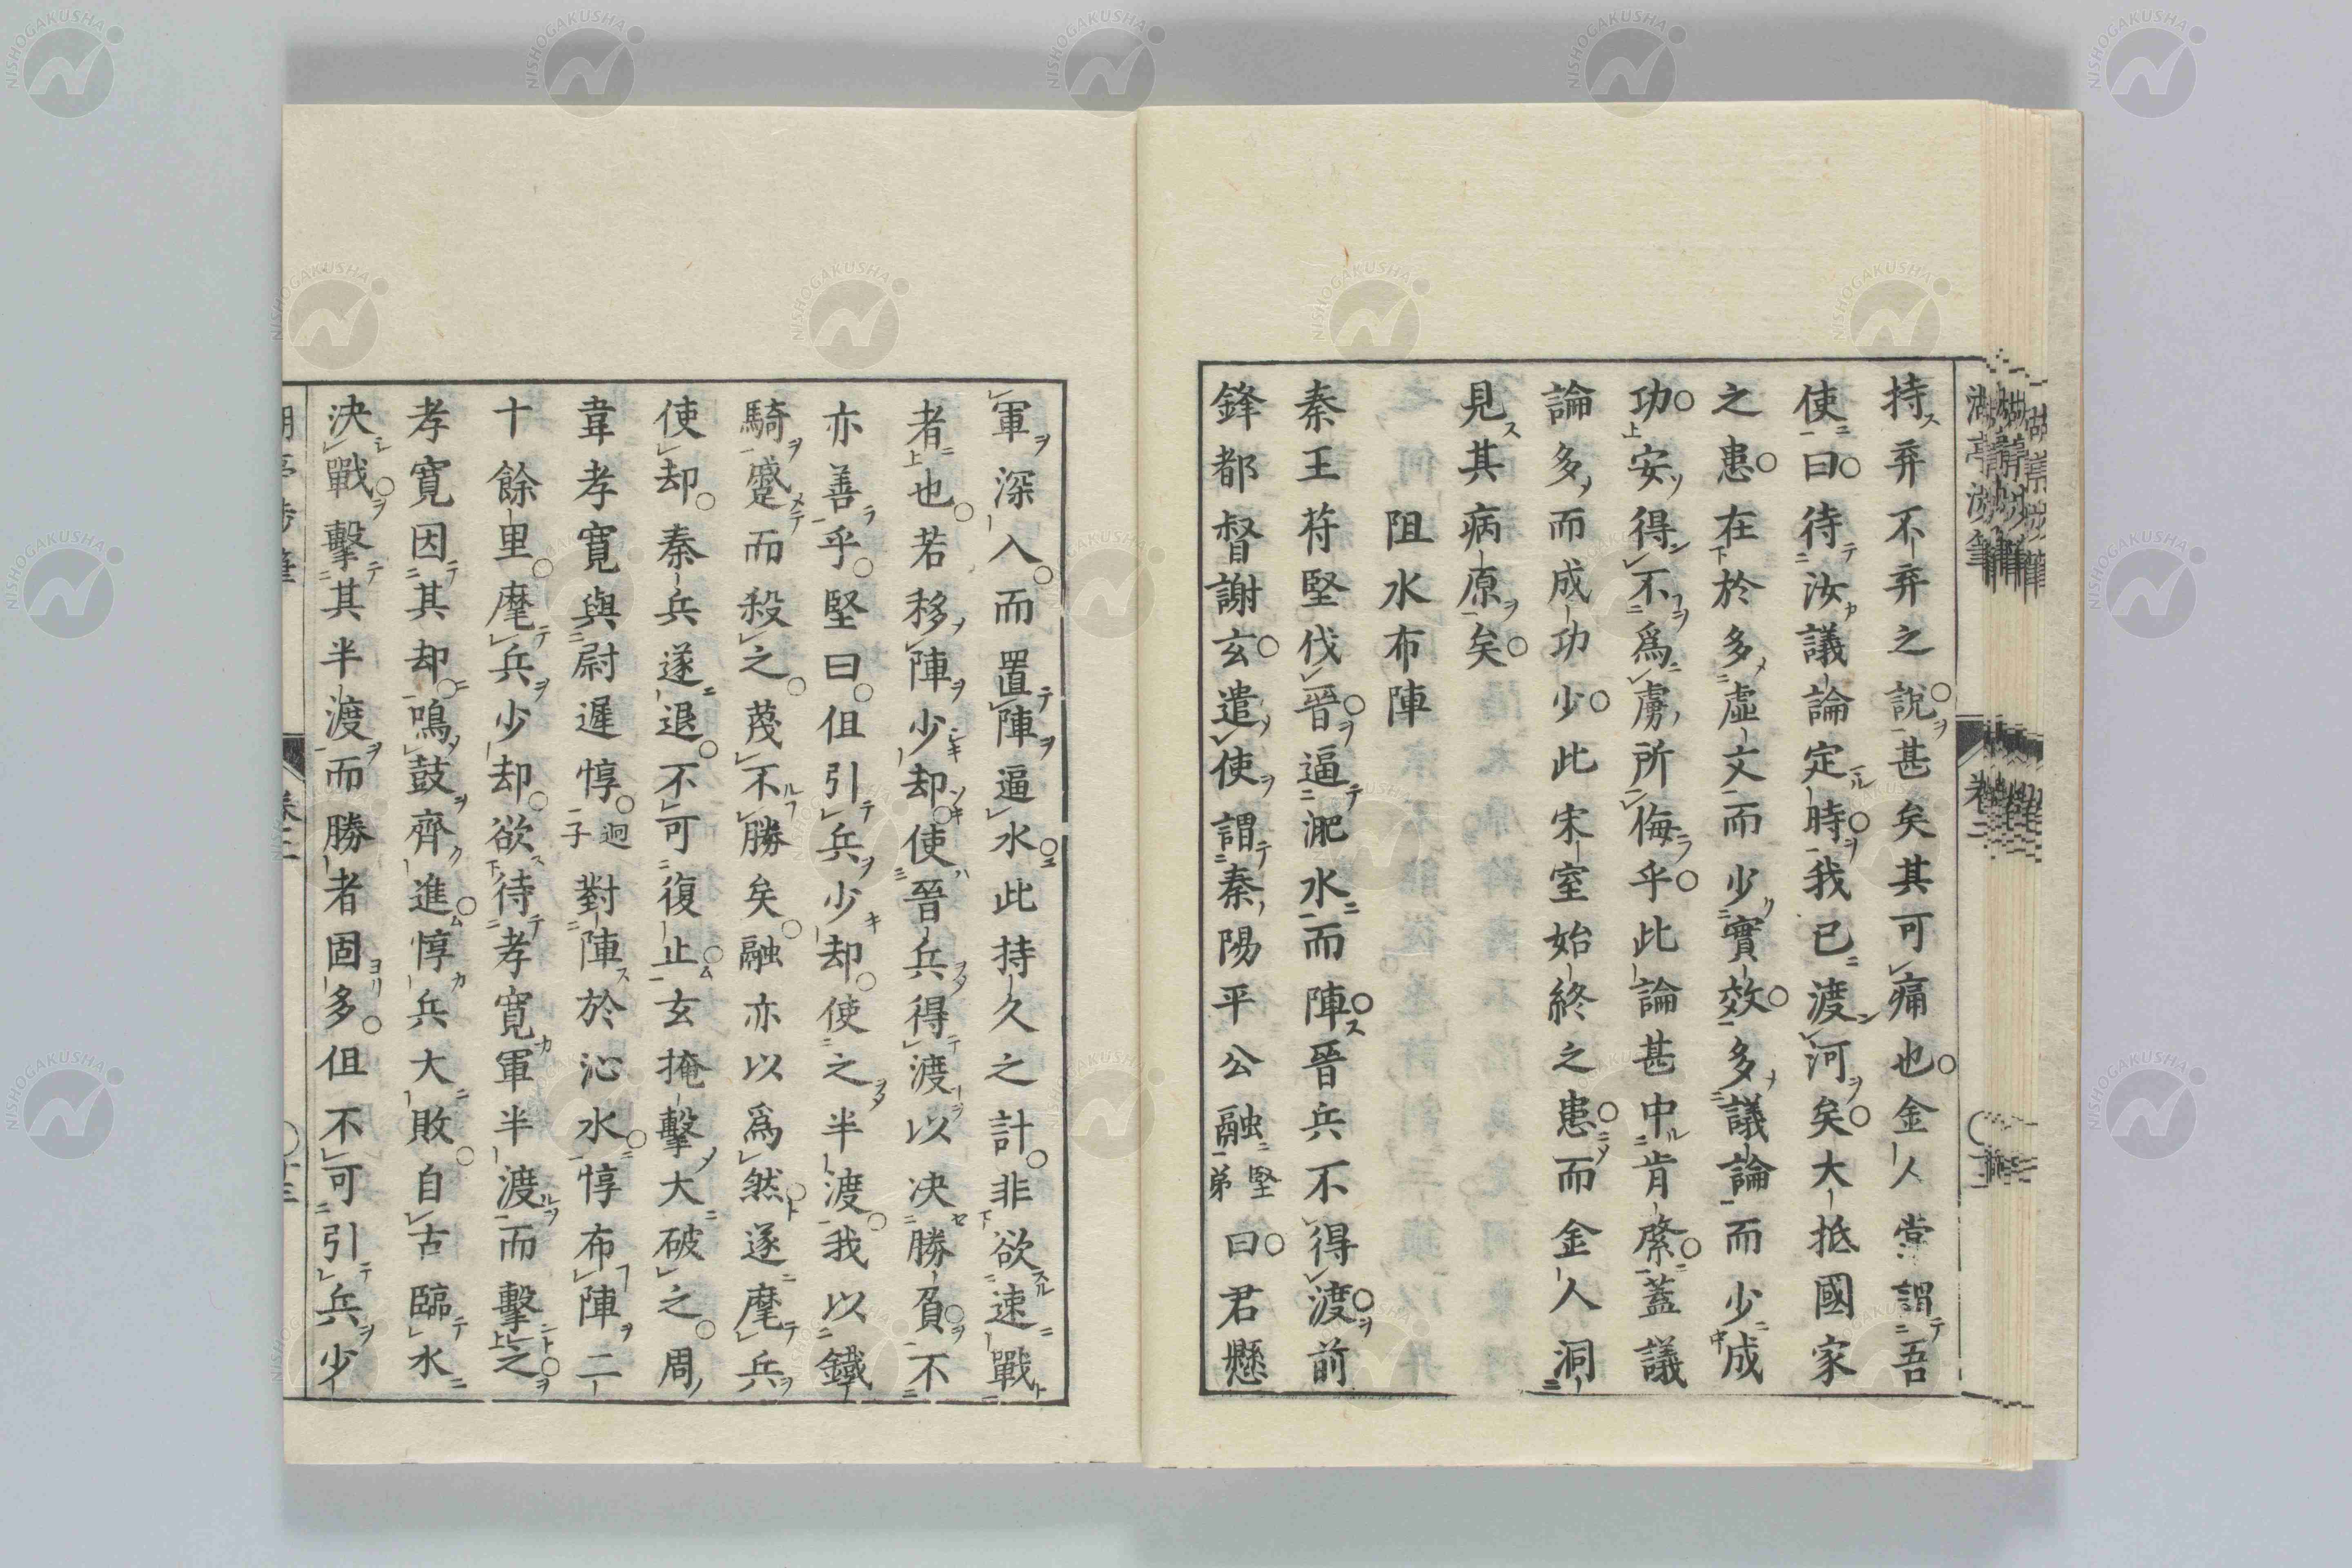 持弃不弃之說甚矣其可痛也金人嘗謂吾
使曰待汝議論定時我已渡河矣大抵國家
之患在於多虛文而少實效多議論而少成
功安得不爲虜所侮乎此論甚中肯綮蓋議
論多而成功少此宋室始終之患而金人洞
見其病原矣
阻水布陣
秦王苻堅伐晉逼淝水而陣晉兵不得渡前
鋒都督謝玄遣使謂秦陽平公融堅弟曰君懸
軍深入而置陣逼水此持久之計非欲速戰
者也若移陣少却使晉兵得渡以决勝負不
亦善乎堅曰但引兵少却使之半渡我以鐵
騎蹙而殺之蔑不勝矣融亦以爲然遂麾兵
使却秦兵遂退不可復止玄掩擊大破之周
韋孝寬與尉遲惇迥子對陣於沁水惇布陣二
十餘里麾兵少却欲待孝寬軍半渡而擊之
孝寬因其却鳴鼓齊進惇兵大敗自古臨水
決戰擊其半渡而勝者固多但不可引兵少
卷三
NISHOGAKUSHA